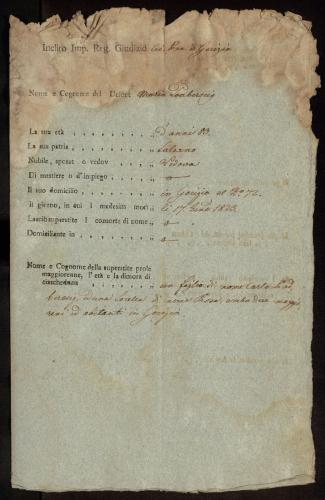 Inclito Imp. Reg. Giudizio Civ. Prov. di Gorizia
Nome e Cognome del Defont Maria
La sua età , , , , , , , , , D'anni 83.
La sua patria , , , , , , , , Salerno
Nubile, sposat o vedov , , , , , Vedova
Di mestiere o d'impiego , , , , ,
Il suo domicilio , , , , , , , in Gorizia al No 72.
Il giorno, in cui l molesim morì , li 17 1823.
Lascia superstite l consorte di nome , ,
Domiciliante in , , , , , , ,
Nome e Cognome della superstite prole
maggiorenne, l'età e la dimora di
ciascheduna , , , , , , , un figlio di nome Carlo
ed una di nome ambi due maggio
reni ed esistenti in Gorizia